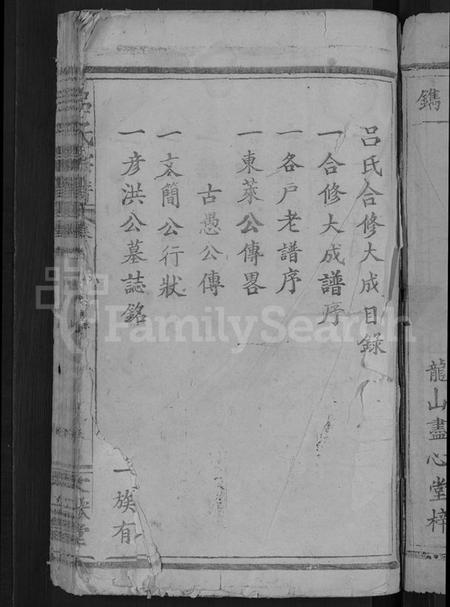 鐫
龍山盡心堂梓
呂氏合修大成目錄
一合修大成譜序
一各戶老譜序
一東萊公傳畧
古愚公傳
一文簡公行狀
一彥洪公墓誌銘
一族有
FamilySearch